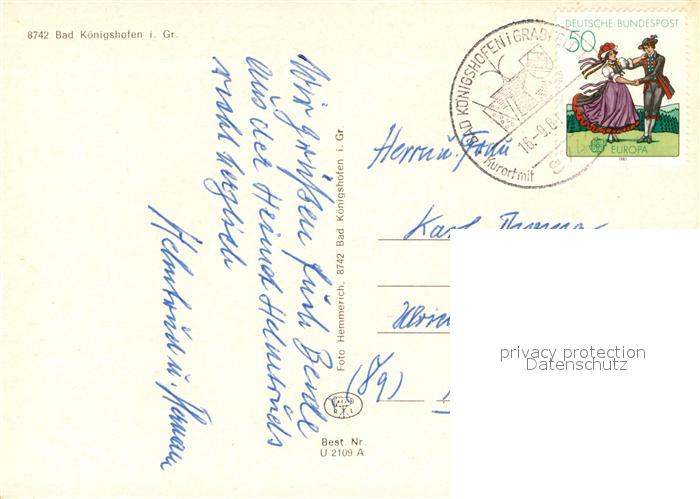 8742 Bad Königshofen i. Gr.
BAD KÖNIGSHOFEN i GRABFELD
16.-9.81
Kurort mit
DEUTSCHE BUNDESPOST
50
EUROPA
1981
Wir grüßen Euch Beide
aus der Heimat Helmtruds
recht herzlich
Helmtrud u.
Foto Hemmerich, 8742 Bad Königshofen i. Gr.
Herrn u. Frau
Karl
(89)
Best. Nr.
U 2109 A
privacy protection
Datenschutz